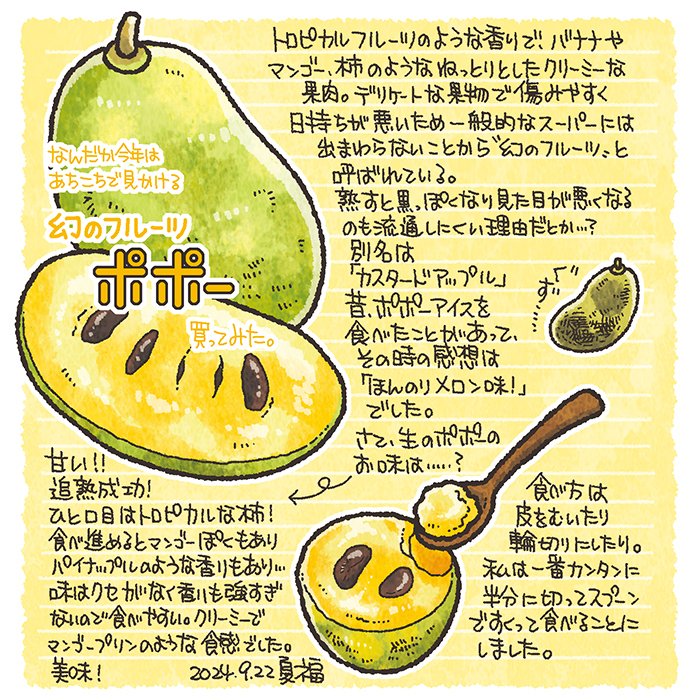 トロピカルフルーツのような香りで、バナナや
マンゴー、柿のようなねっとりとしたクリーミーな
果肉。デリケートな果物で傷みやすく
日持ちが悪いため一般的なスーパーには
出まわらないことから“幻のフルーツ”と
呼ばれている。
熟すと黒っぽくなり見た目が悪くなる
のも流通しにくい理由だとか…?
別名は
「カスタードアップル」
昔、ポポーアイスを
食べたことがあって、
その時の感想は
「ほんのりメロン味!」
でした。
さて、生のポポーの
お味は……?
ずーん
なんだか今年は
あちこちで見かける
幻のフルーツ
ポポー
買ってみた。
甘い!!
追熟成功!
ひと口目はトロピカルな柿!
食べ進めるとマンゴーぽくもあり
パイナップルのような香りもあり…
味はクセがなく香りも強すぎ
ないので食べやすい。クリーミーで
マンゴープリンのような食感でした。
美味!
2024.9.22 夏福
食べ方は
皮をむいたり
輪切りにしたり。
私は一番カンタンに
半分に切ってスプーン
ですくって食べることに
しました。